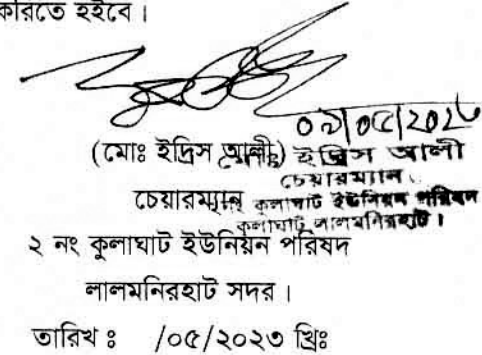 করিতে হইবে।
০৯/০৫/202৩
(মোঃ ইদ্রিস আলী) ইদ্রিস আলী
চেয়ারম্যান
চেয়ারম্যান কুলাঘাট ইউনিয়ন পরিষদ
কুলাঘাট লালমনিরহাট।
২ নং কুলাঘাট ইউনিয়ন পরিষদ
লালমনিরহাট সদর।
তারিখ ঃ /০৫/২০২৩ খ্রিঃ